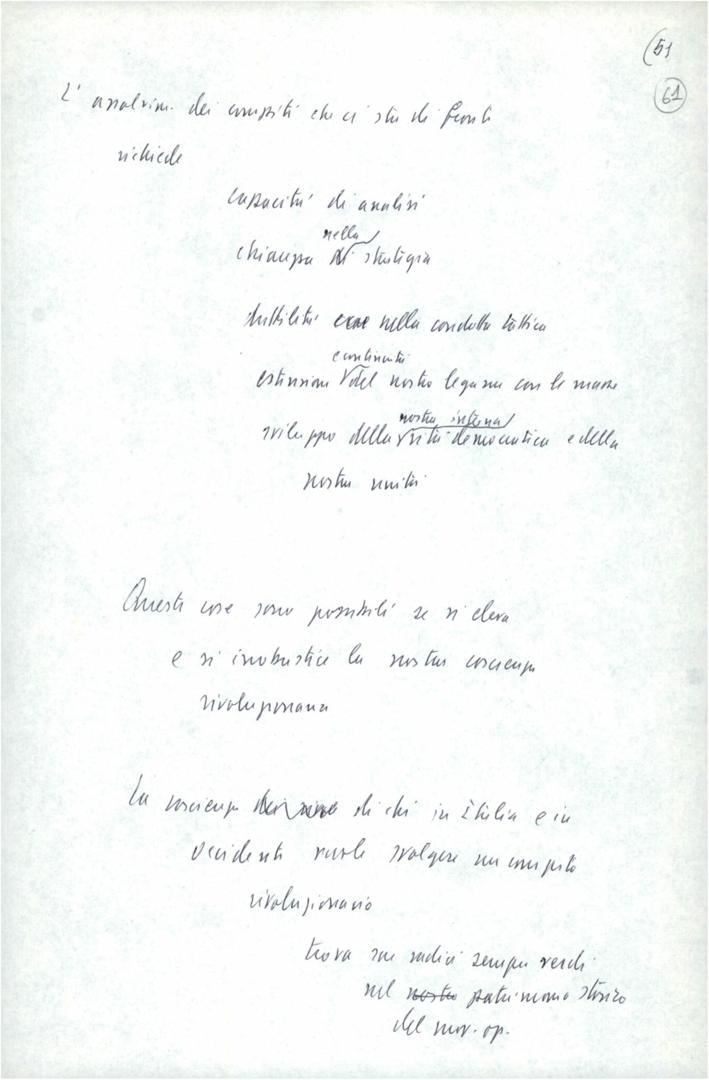 51
61
L' assolvim. dei compiti che ci sta di fronte
richiede
capacità di analisi
nella
chiarezza di strategia
duttilità nella condotta tattica
e continuità
estensione del nostro legame con le masse
nostra interna
sviluppo della vita democratica e della
nostra unità
Queste cose sono possibili se si eleva
e si irrobustisce la nostra coscienza
rivoluzionaria
La coscienza di chi in Italia e in
occidente vuole svolgere un compito
rivoluzionario
trova sue radici sempre verdi
nel nostro patrimonio storico
del mov. op.